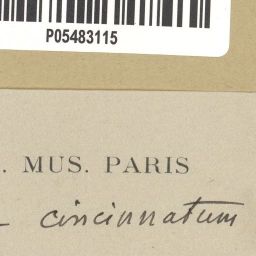 P05483115
. MUS. PARIS
cincinnatum